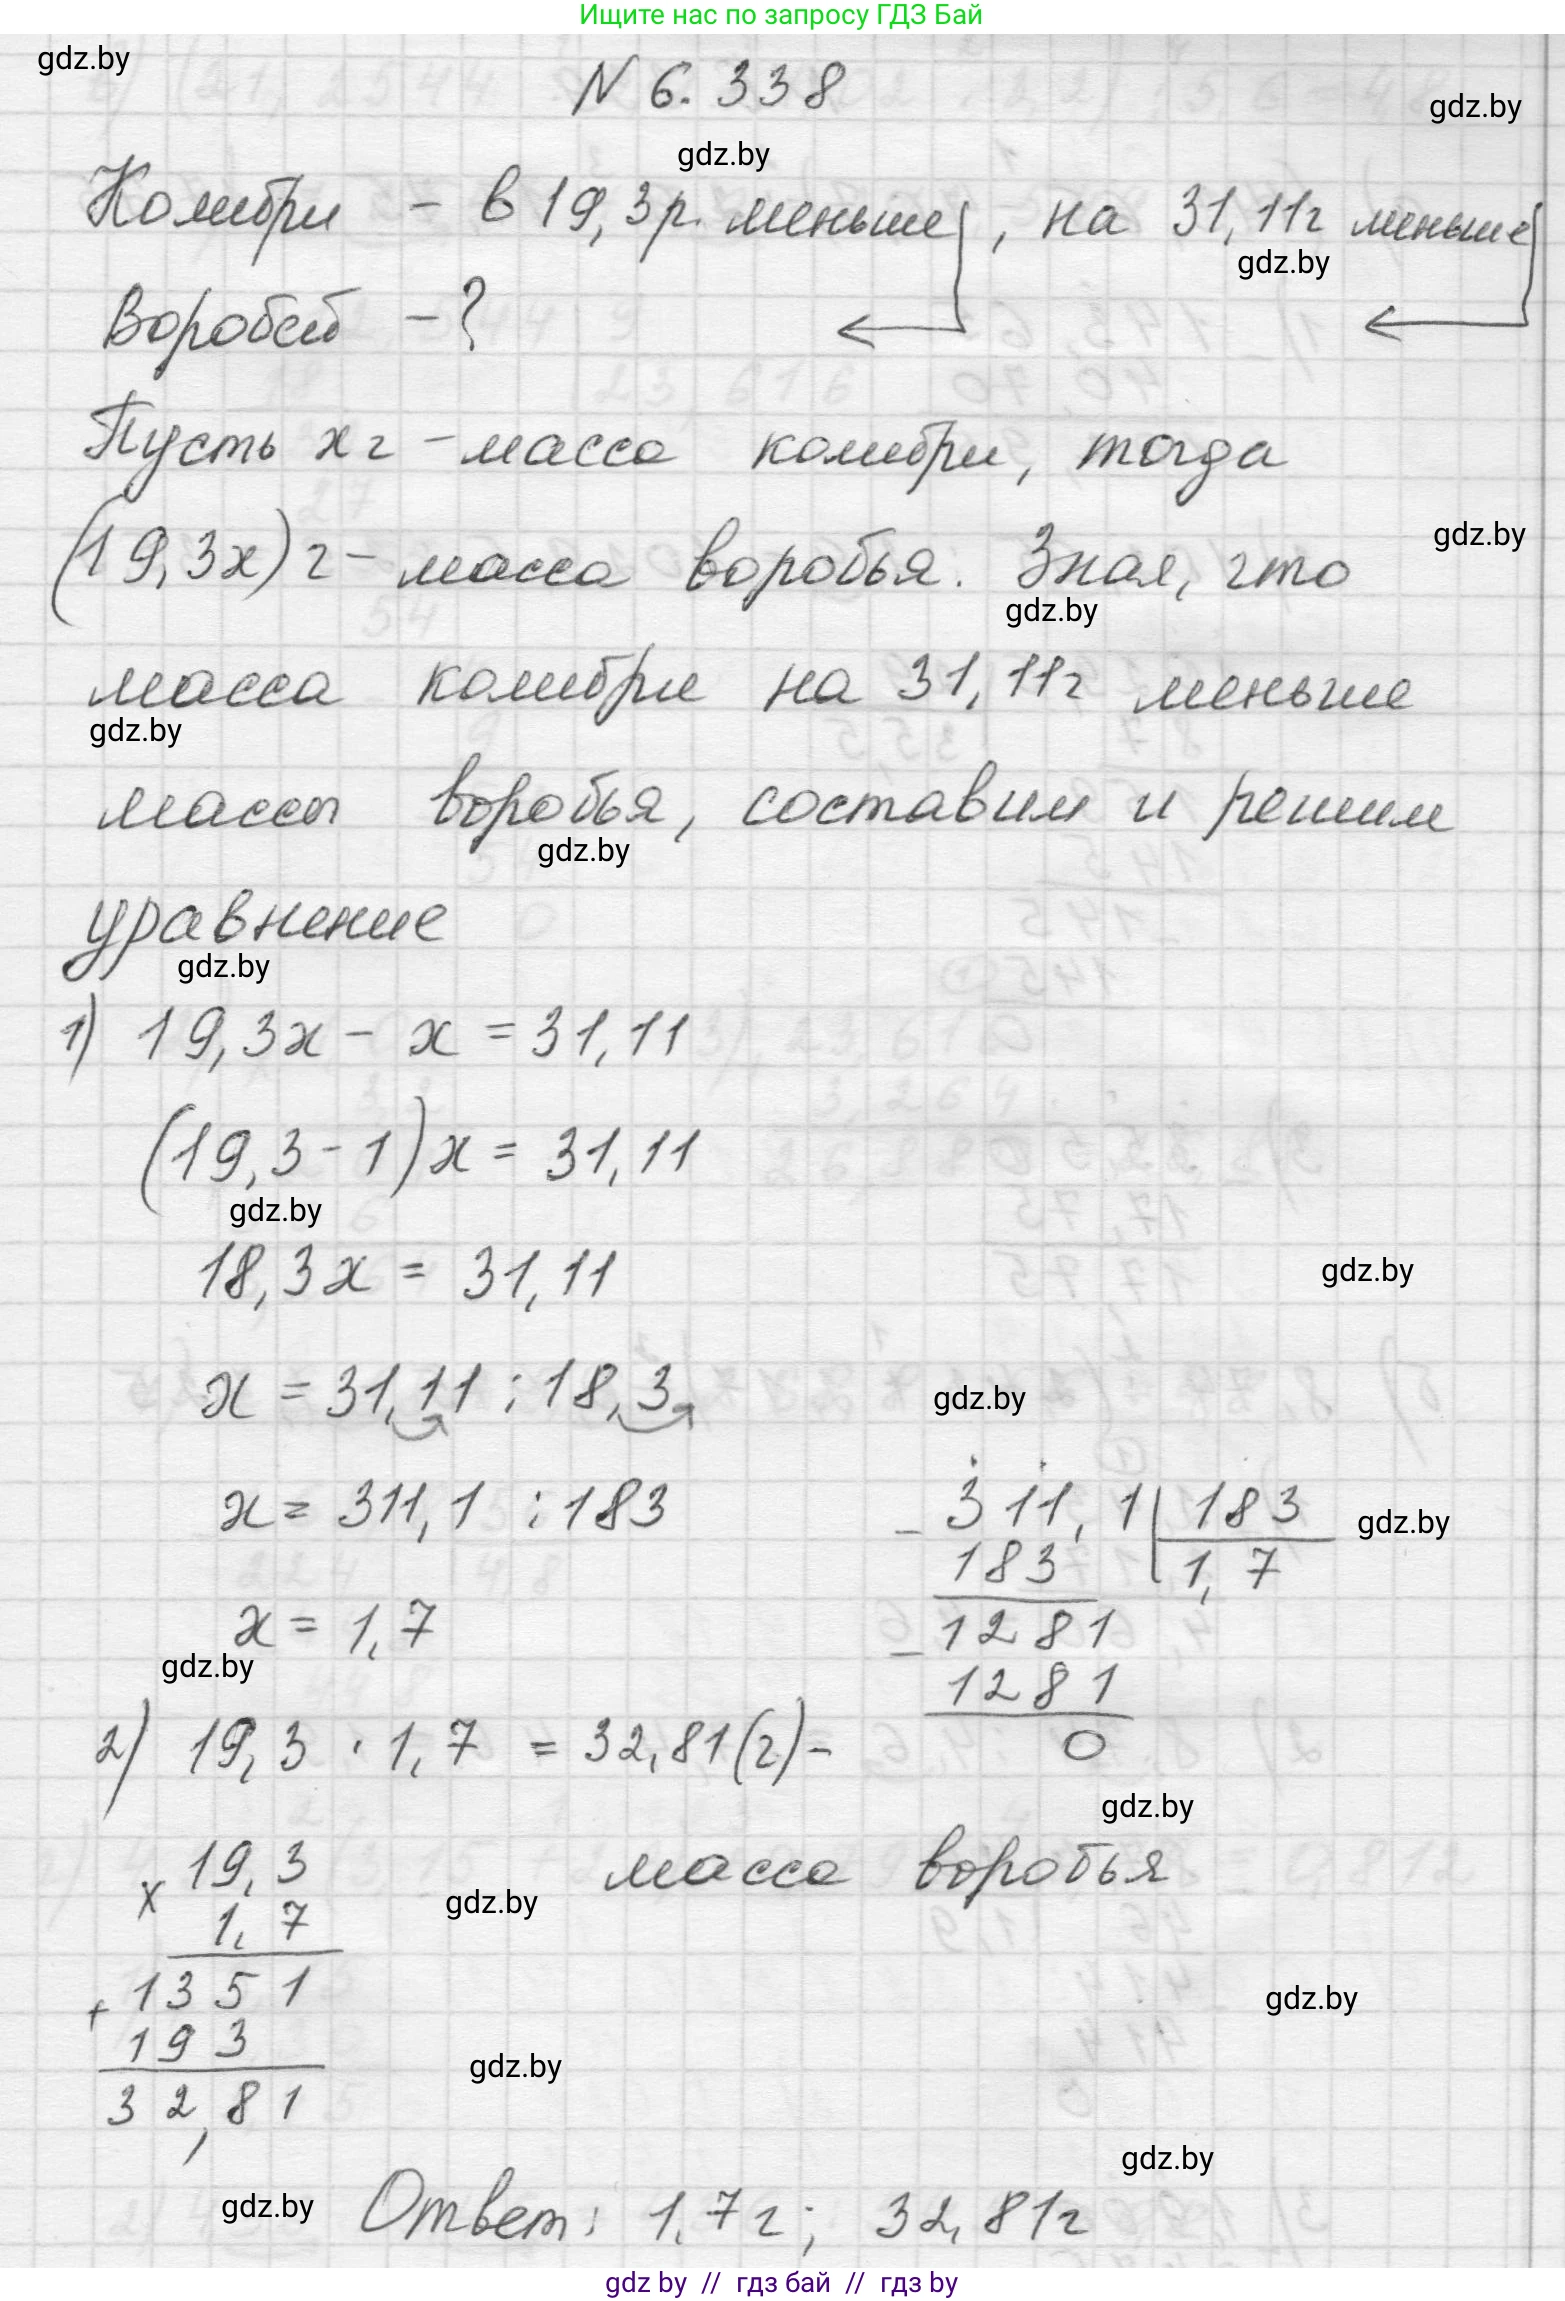 Ищите нас по запросу ГДЗ Бай
gdz.by
N 6.338
gdz.by
gdz.by
Колибри - в 19,3 р. меньше, на 31,11г меньше
gdz.by
Воробей - ?
Пусть x г - масса колибри, тогда
(19,3x) г - масса воробья. Зная, что
gdz.by
gdz.by
масса колибри на 31,11г меньше
gdz.by
массы воробья, составим и решим
gdz.by
уравнение
gdz.by
1) 19,3x - x = 31,11
(19,3 - 1)x = 31,11
gdz.by
18,3x = 31,11
gdz.by
x = 31,11 : 18,3
gdz.by
x = 311,1 : 183
x = 1,7
gdz.by
- 311,1 | 183
gdz.by
183 | 1,7
- 1281
1281
0
2) 19,3 · 1,7 = 32,81 (г) -
gdz.by
масса воробья
x 19,3
1,7
gdz.by
+ 1351
193
32,81
gdz.by
gdz.by
gdz.by
gdz.by
Ответ: 1,7 г; 32,81г
gdz by // гдз бай // гдз by